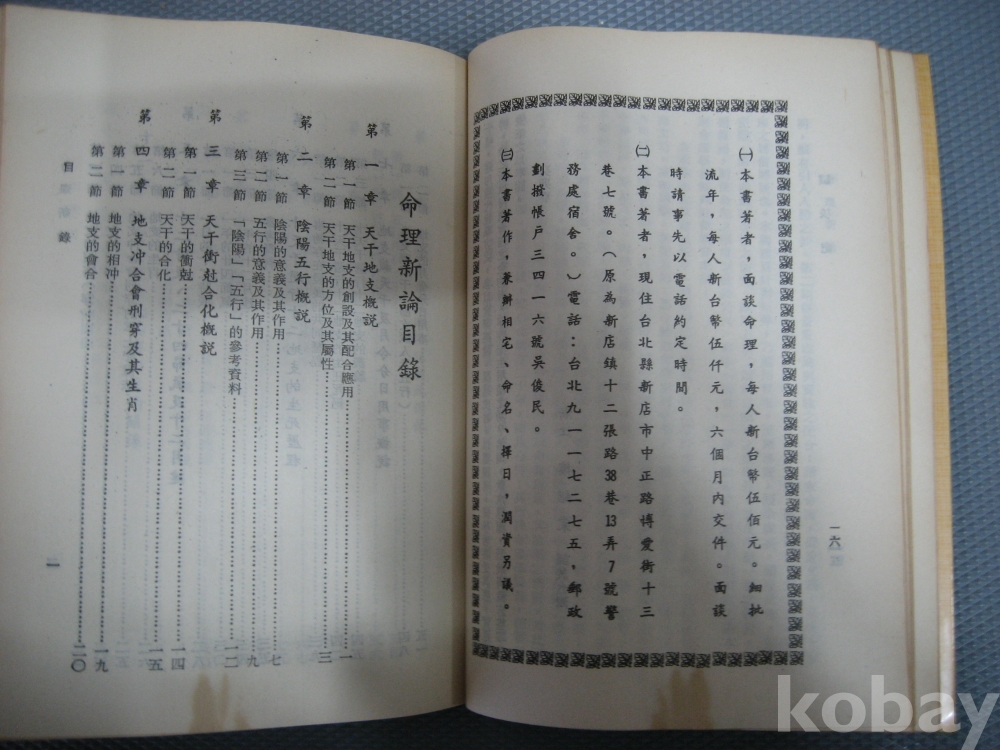 ㈠本書著者，面談命理，每人新台幣伍佰元。細批
流年，每人新台幣伍仟元，六個月內交件。面談
時請事先以電話約定時間。
㈡本書著者，現住台北縣新店市中正路博愛街十三
巷七號。（原為新店鎮十二張路38巷13弄7號警
務處宿舍。）電話：台北九一一七二七五，郵政
劃撥帳戶三四一六號吳俊民。
㈢本書著作，兼辦相宅、命名、擇日，潤資另議。
一六
命理新論目錄
第一章 天干地支概說
第一節 天干地支的創設及其配合應用……一
第二節 天干地支的方位及其屬性……三
第二章 陰陽五行概說
第一節 陰陽的意義及其作用……七
第二節 五行的意義及其作用……九
第三節 「陰陽」「五行」的參考資料……一二
第三章 天干衝尅合化概說
第一節 天干的衝尅……一四
第二節 天干的合化……一五
第四章 地支冲合會刑穿及其生肖
第一節 地支的相冲……一九
第二節 地支的會合……二〇
目錄
一
kobay